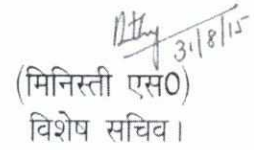 31/8/15
(मिनिस्ती एस0)
विशेष सचिव।